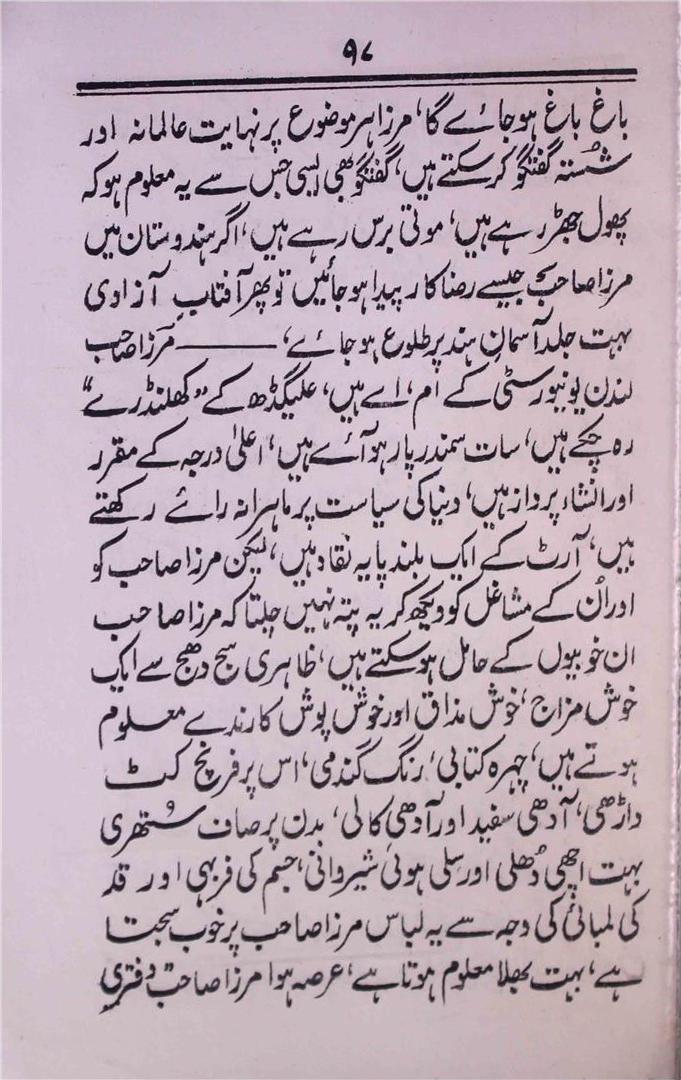 ۹۸
باغ باغ ہو جائے گا، مرزا ہر موضوع پر نہایت عالمانہ اور
شُستہ گفتگو کر سکتے ہیں، گفتگو بھی ایسی جس سے یہ معلوم ہو کہ
پھول جھڑ رہے ہیں، موتی برس رہے ہیں، اگر ہندوستان میں
مرزا صاحب جیسے رضا کار پیدا ہو جائیں تو پھر آفتابِ آزادی
بہت جلد آسمانِ ہند پر طلوع ہو جائے، ——— مرزا صاحب
لندن یونیورسٹی کے ام، اے ہیں، علیگڈھ کے "کھلنڈرے"
رہ چکے ہیں، سات سمندر پار ہو آئے ہیں، اعلیٰ درجہ کے مقرر
اور انشاء پرداز ہیں، دنیا کی سیاست پر ماہرانہ رائے رکھتے
ہیں، آرٹ کے ایک بلند پایہ نقاد ہیں، لیکن مرزا صاحب کو
اور اُن کے مشاغل کو دیکھ کر یہ پتہ نہیں چلتا کہ مرزا صاحب
ان خوبیوں کے حامل ہو سکتے ہیں، ظاہری سج دھج سے ایک
خوش مزاج، خوش مذاق اور خوش پوش کارندے معلوم
ہوتے ہیں، چہرہ کتابی، رنگ گندمی، اس پر فرنچ کٹ
داڑھی، آدھی سفید اور آدھی کالی، بدن پر صاف ستھری
بہت اچھی دُھلی اور سلی ہوئی شیروانی، جسم کی فربہی اور قد
کی لمبائی کی وجہ سے یہ لباس مرزا صاحب پر خوب سجتا
ہے، بہت بھلا معلوم ہوتا ہے، عرصہ ہوا مرزا صاحب دفتری